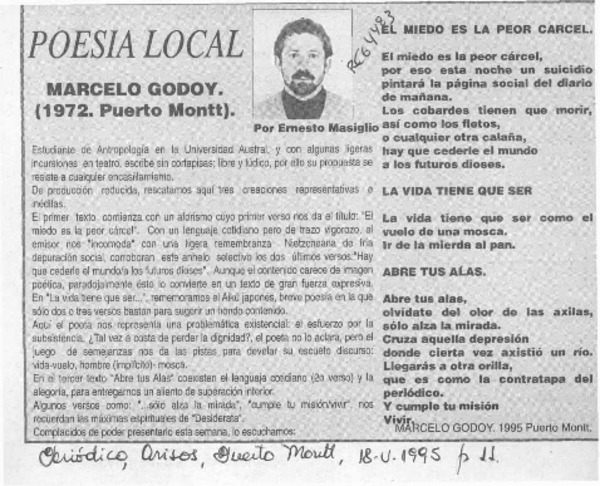 POESIA LOCAL
MARCELO GODOY.
(1972. Puerto Montt).
RC64493
Por Ernesto Masiglio
Estudiante de Antropología en la Universidad Austral, y con algunas ligeras
incursiones en teatro, escribe sin cortapisas; libre y lúdico, por ello su propuesta se
resiste a cualquier encasillamiento.
De producción reducida, rescatamos aquí tres creaciones representativas e
inéditas.
El primer texto, comienza con un aforismo cuyo primer verso nos da el título: "El
miedo es la peor cárcel". Con un lenguaje cotidiano pero de trazo vigorozo, al
emisor nos "incomoda" con una ligera remembranza Nietzcheana de fría
depuración social, corroboran este anhelo selectivo los dos últimos versos:"Hay
que cederle el mundo/a los futuros dioses". Aunque el contenido carece de imagen
poética, paradojalmente ésto lo convierte en un texto de gran fuerza expresiva.
En "La vida tiene que ser...", rememoramos al Aikú japonés, breve poesía en la que
sólo dos o tres versos bastan para sugerir un hondo contenido.
Aquí el poeta nos representa una problemática existencial: el esfuerzo por la
subsistencia, ¿Tal vez a costa de perder la dignidad?, el poeta no lo aclara, pero el
juego de semejanzas nos da las pistas para develar su escueto discurso:
vida-vuelo, hombre (implícito)- mosca.
En el tercer texto "Abre tus Alas" coexisten el lenguaje cotidiano (2o verso) y la
alegoría, para entregarnos un aliento de superación interior.
Algunos versos como: "...sólo alza la mirada", "cumple tu misión/vivir", nos
recuerdan las máximas espirituales de "Desiderata".
Complacidos de poder presentarlo esta semana, lo escuchamos:
EL MIEDO ES LA PEOR CARCEL.
El miedo es la peor cárcel,
por eso esta noche un suicidio
pintará la página social del diario
de mañana.
Los cobardes tienen que morir,
así como los fletos,
o cualquier otra calaña,
hay que cederle el mundo
a los futuros dioses.
LA VIDA TIENE QUE SER
La vida tiene que ser como el
vuelo de una mosca.
Ir de la mierda al pan.
ABRE TUS ALAS.
Abre tus alas,
olvídate del olor de las axilas,
sólo alza la mirada.
Cruza aquella depresión
donde cierta vez axistió un río.
Llegarás a otra orilla,
que es como la contratapa del
periódico.
Y cumple tu misión
Vivir.
MARCELO GODOY. 1995 Puerto Montt.
Periódico, Avisos, Puerto Montt, 18-V-1995 p 11.